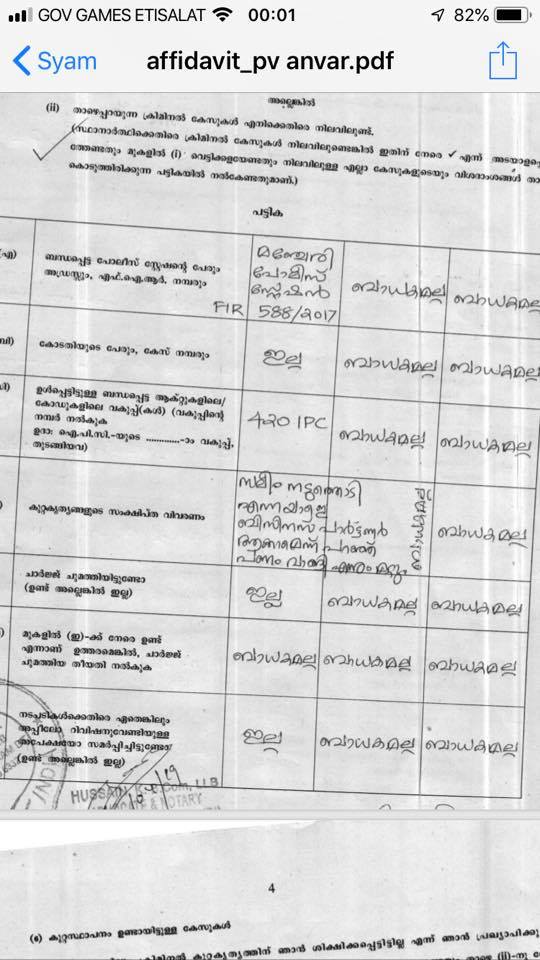 GOV GAMES ETISALAT 00:01 82%
Syam affidavit_pv anvar.pdf
അല്ലെങ്കിൽ
(ii) താഴെപ്പറയുന്ന ക്രിമിനൽ കേസുകൾ എനിക്കെതിരെ നിലവിലുണ്ട്.
(സ്ഥാനാർത്ഥിക്കെതിരെ ക്രിമിനൽ കേസുകൾ നിലവിലുണ്ടെങ്കിൽ ഇതിന് നേരെ ✓ എന്ന് അടയാള
ത്തേണ്ടതും മുകളിൽ (i) വെട്ടിക്കളയേണ്ടതും നിലവിലുള്ള എല്ലാ കേസുകളുടെയും വിശദാംശങ്ങൾ താ
കൊടുത്തിരിക്കുന്ന പട്ടികയിൽ നൽകേണ്ടതുമാണ്.)
പട്ടിക
(എ) ബന്ധപ്പെട്ട പോലീസ് സ്റ്റേഷന്റെ പേരും
അഡ്രസ്സും, എഫ്.ഐ.ആർ. നമ്പരും
FIR
മഞ്ചേരി
പോലീസ്
സ്റ്റേഷൻ
588/2017
ബാധകമല്ല ബാധകമല്ല
ബി) കോടതിയുടെ പേരും, കേസ് നമ്പരും ഇല്ല ബാധകമല്ല ബാധകമല്ല
സി) ഉൾപ്പെട്ടിട്ടുള്ള ബന്ധപ്പെട്ട ആക്റ്റുകളിലെ/
കോഡുകളിലെ വകുപ്പ്(കൾ) (വകുപ്പിന്റെ
നമ്പർ നൽകുക
ഉദാ: ഐ.പി.സി.-യുടെ ............-ാം വകുപ്പ്,
തുടങ്ങിയവ)
420 IPC ബാധകമല്ല ബാധകമല്ല
) കുറ്റകൃത്യങ്ങളുടെ സംക്ഷിപ്ത വിവരണം
സലീം നടുത്തൊടി
എന്നയാളെ
ബിസിനസ് പാർട്ട്ണർ
ആക്കാമെന്ന് പറഞ്ഞ്
പണം വാങ്ങി എന്നും മറ്റും
ബാധകമല്ല
ബാധകമല്ല
ചാർജ്ജ് ചുമത്തിയിട്ടുണ്ടോ
(ഉണ്ട് അല്ലെങ്കിൽ ഇല്ല)
ഇല്ല ബാധകമല്ല ബാധകമല്ല
) മുകളിൽ (ഇ)-ക്ക് നേരെ ഉണ്ട്
എന്നാണ് ഉത്തരമെങ്കിൽ, ചാർജ്ജ്
ചുമത്തിയ തീയതി നൽകുക
ബാധകമല്ല ബാധകമല്ല ബാധകമല്ല
നടപടികൾക്കെതിരെ ഏതെങ്കിലും
അപ്പീലോ റിവിഷനുവേണ്ടിയുള്ള
അപേക്ഷയോ സമർപ്പിച്ചിട്ടുണ്ടോ
(ഉണ്ട് അല്ലെങ്കിൽ ഇല്ല)
ഇല്ല ബാധകമല്ല ബാധകമല്ല
HUSSAIN
NOTARY
4
(6) കുറ്റസ്ഥാപനം ഉണ്ടായിട്ടുള്ള കേസുകൾ
ക്രിമിനൽ കുറ്റകൃത്യത്തിന് ഞാൻ ശിക്ഷിക്കപ്പെട്ടിട്ടില്ല എന്ന് ഞാൻ പ്രഖ്യാപിക്കു